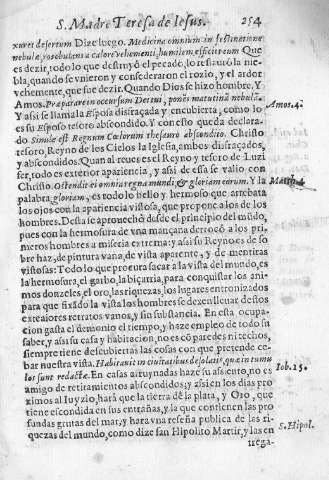 S. Madre Teresa de Iesus. 254
xuret desertum Dize luego. Medicina omnium in festinatione
nebulæ, ros obuians calore vehementi, humilem efficiet eum Que
es dezir, todo lo que destruyò el pecado, lo restaurò la nie-
bla, quando se vnieron y consederaron el rozio, y el ardor
vehemente, que fue dezir. Quando Dios se hizo hombre. Y
Amos. Præparare in occursum Deitui, pones matutinā nebulā. Amos. 4.
Y assi se llama la Esposa disfraçada y encubierta, como lo
es su Esposo tesoro abscondido. Y con esto queda decla-
rado Simile est Regnum Cœlorum thesauro abscondito. Christo
tesoro, Reyno de los Cielos la Iglesia, ambos disfraçados,
y abscondidos. Qual al reues es el Reyno y tesoro de Luzi
fer, todo es exterior apariencia, y assi de essa se valio con
Christo. Ostendit ei omnia regna mundi, & gloriam eorum. Y la
palabra, gloriam, es todo lo bello y hermoso que arrebata
los ojos con la apariencia vistosa, que propone a los de los
hombres. Desta se aprouechò desde el principio del mūdo,
pues con la hermosura de vna mançana derrocò a los pri-
meros hombres a miseria extrema: y assi su Reyno es de so
bre haz, de pintura vana, de vista aparente, y de mentiras
vistosas: Todo lo que procura sacar a la vista del mundo, es
la hermosura, el garbo, la biçarria, para conquistar los ani-
mos donzeles, el oro, las riquezas, los lugares entronizados
para que fixādo la vista los hombres se dexen lleuar destos
exteriores retratos vanos, y sin substancia. En esta ocupa-
cion gasta el demonio el tiempo, y haze empleo de todo su
saber, y assi su casa y habitacion, no es cō paredes ni techos,
siempre tiene descubiertas las cosas con que pretende ce-
bar nuestra vista. Habitauit in ciuitatibus desolatis, quæ in tumu
los sunt redactæ. En casas arruynadas haze su assiento, no es Iob. 15.
amigo de retiramientos abscondidos: y assi en los dias pro
ximos al Iuyzio, harà que la tierra dè la plata, y Oro, que
tiene escondida en sus entrañas, y la que contienen las pro
fundas grutas del mar, y harà vna reseña publica de las ri-
quezas del mundo, como dize san Hipolito Martir, y las en S. Hipol.
trega-